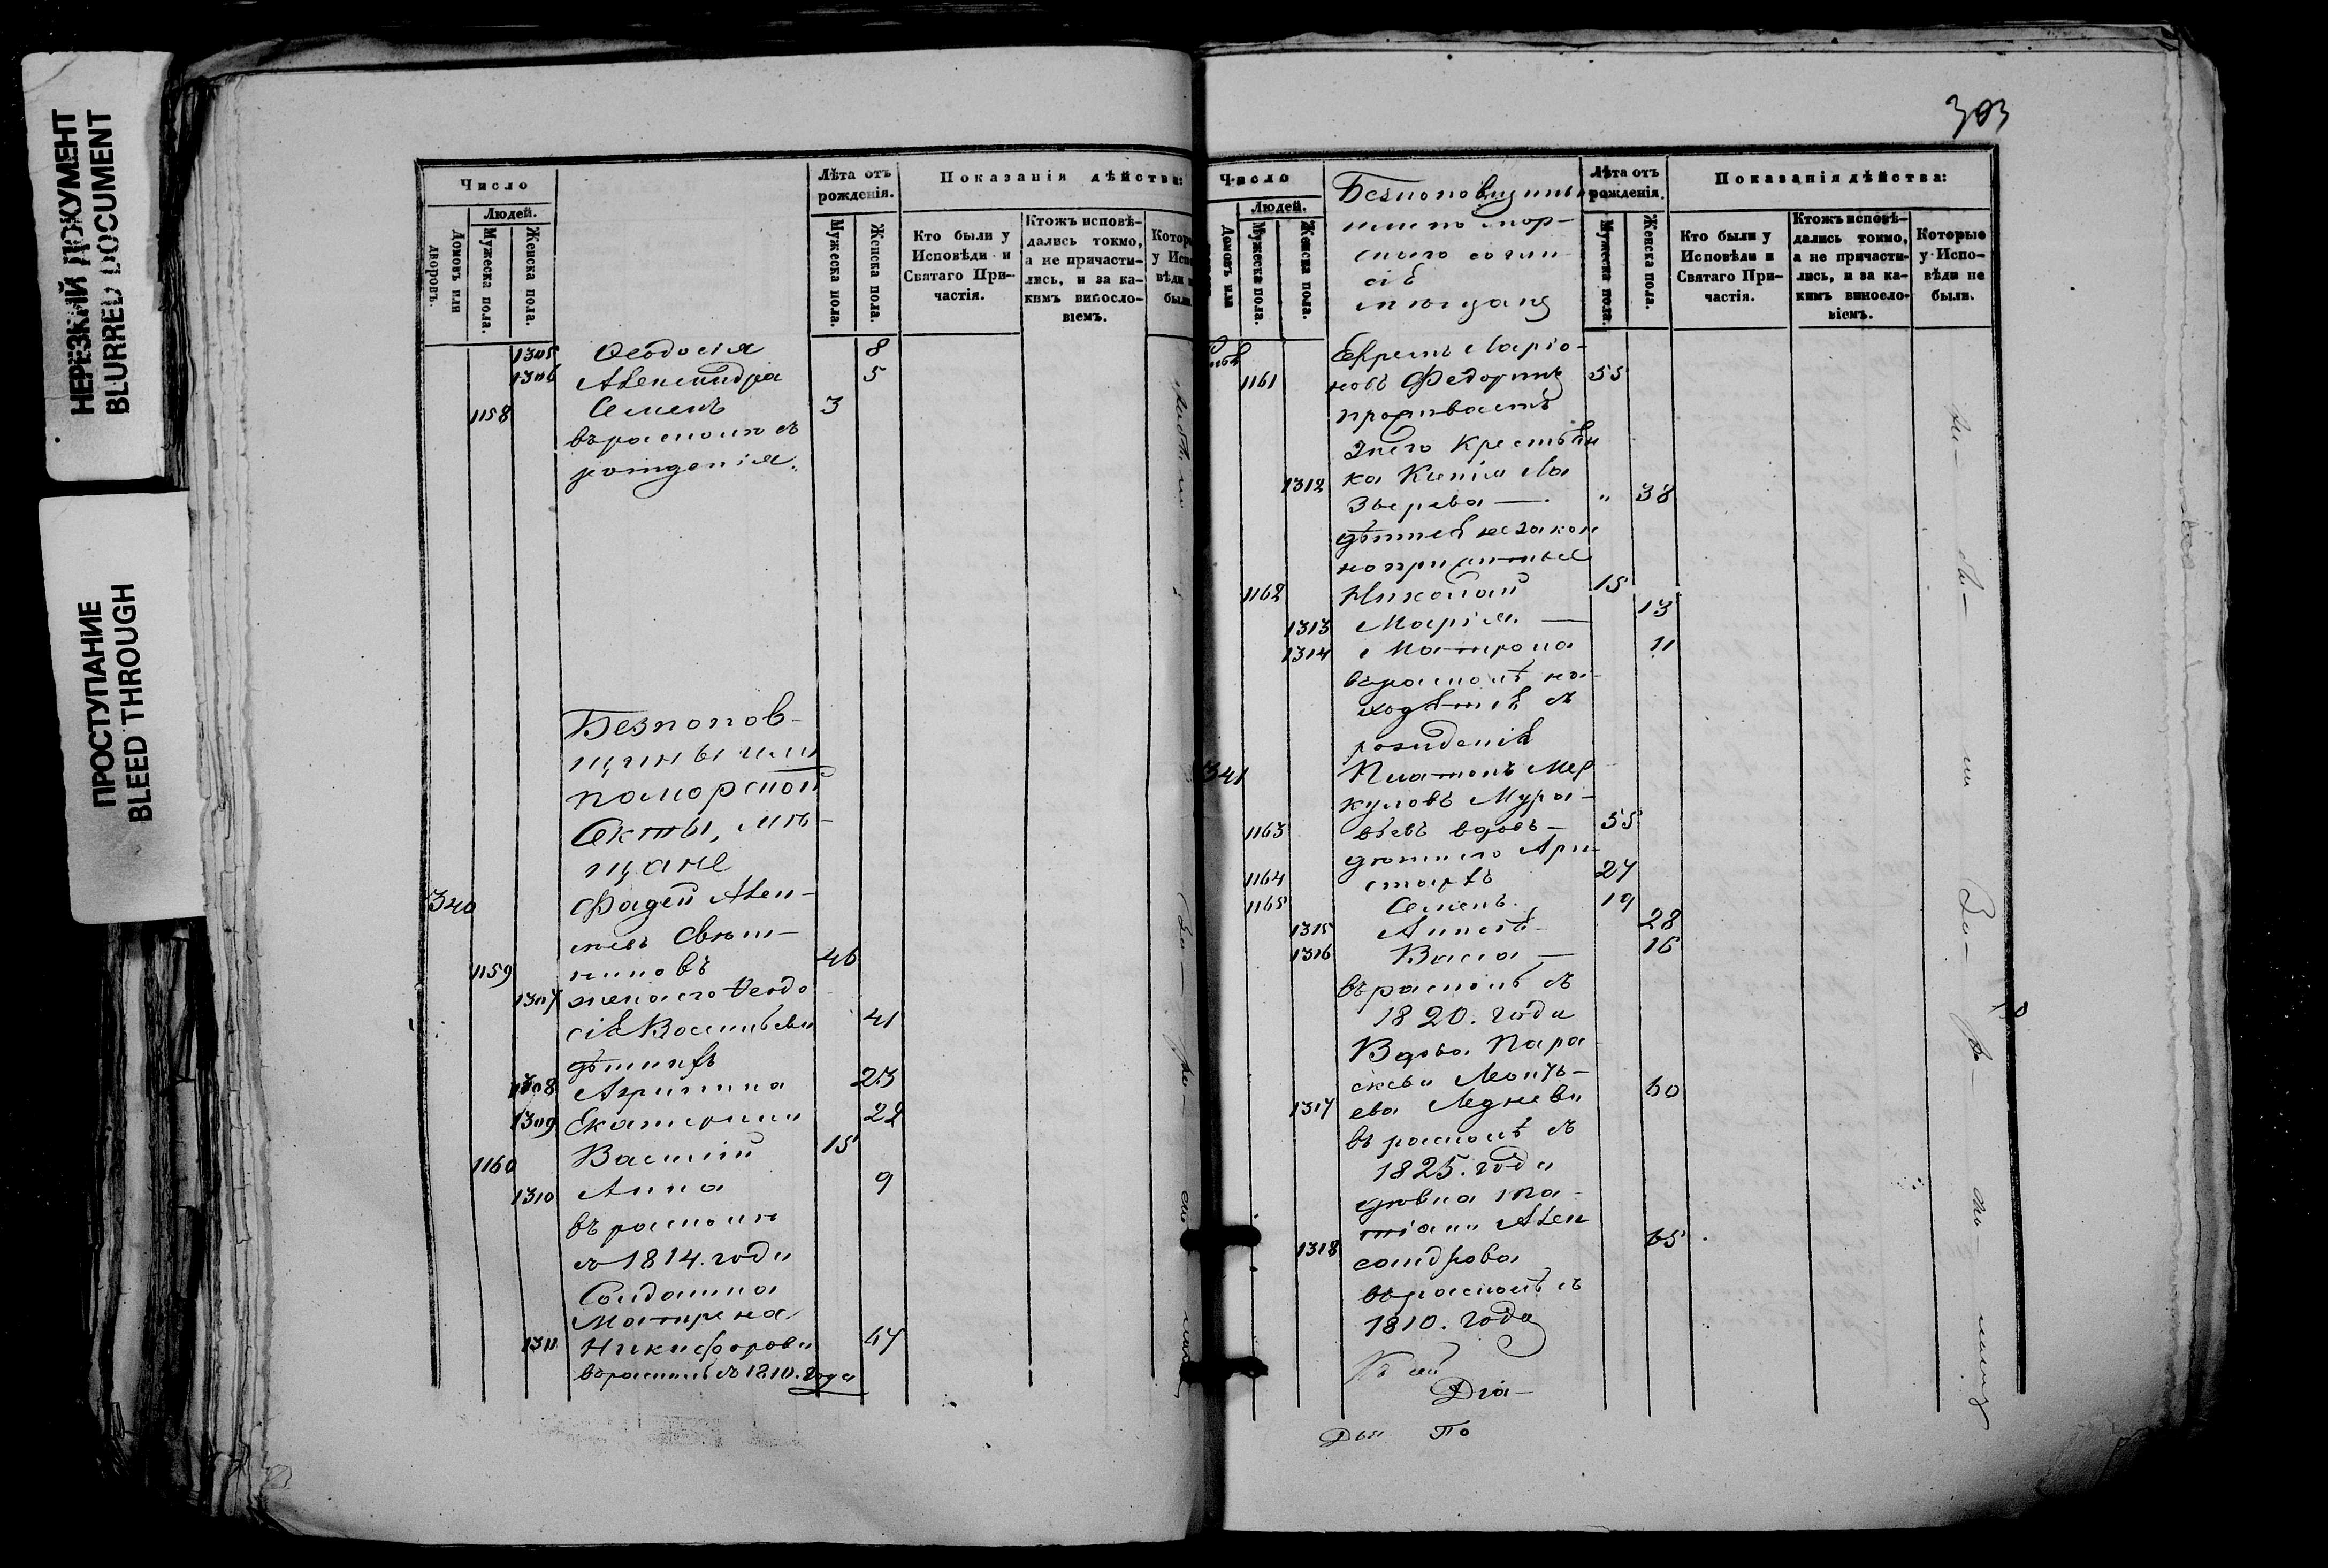 НЕРЕЗКИЙ ДОКУМЕНТ
BLURRED DOCUMENT
ПРОСТУПАНИЕ
BLEED THROUGH
Число
Людей.
Домовъ или дворовъ.
Мужеска пола.
Женска пола.
Лѣта отъ рожденія.
Мужеска пола.
Женска пола.
Показанія дѣйства:
Кто были у Исповѣди и Святаго При-частія.
Ктожъ исповѣ-дались токмо, а не причасти-лись, и за ка-кимъ винословіемъ.
1305 Ѳеодосія 8
1306 Александра 5
1158 Семенъ 3
въ расколѣ съ
рожденія.
Безпопов-
щины или
поморской
Секты, мѣ-
щане
340 Фадей Алек-
1159 46
1307 жена его Ѳеодо
сія Васильева 41
дѣти ихъ
1308 Агрипина 23
1309 Екатерина 22
1160 Василій 15
1310 Анна 9
въ расколѣ
съ 1814. года
Солдатка
Матрена
1311 Никифорова 47
въ расколѣ съ 1810. года
303
Число
Людей.
Домовъ или
Мужеска пола.
Женска пола.
Безпоповщины
Лѣта отъ рожденія.
Мужеска пола.
Женска пола.
Показанія дѣйства:
Кто были у Исповѣди и Святаго При-частія.
Ктожъ исповѣ-дались токмо, а не причасти-лись, и за ка-кимъ винословіемъ.
Которые у Испо-вѣди не были.
Ефремъ Ларіо-
1161 новъ 55
проживаетъ
у него Крестьян
1312 ка Ксенія Ла
Зверева — " 38
дѣтей незакон
но прижитые
1162 Николай 15
1313 Марія — 13
1314 Матрона 11
въ расколѣ на-
ходятся съ
рожденія
341 Платонъ Мер
куловъ Мура-
1163 вьевъ вдовъ — 55
дѣти его Ари-
1164 стархъ 27
1165 Семенъ 19
1315 28
1316 Васса — 16
въ расколѣ съ
1820. года
Вдова Пара
скева Леонть-
1317 ева Леднева 60
въ расколѣ съ
1825. года
вдова Та-
тіана Алек
1318 сандрова 65
въ расколѣ съ
1810. года
Діа-
Дья По